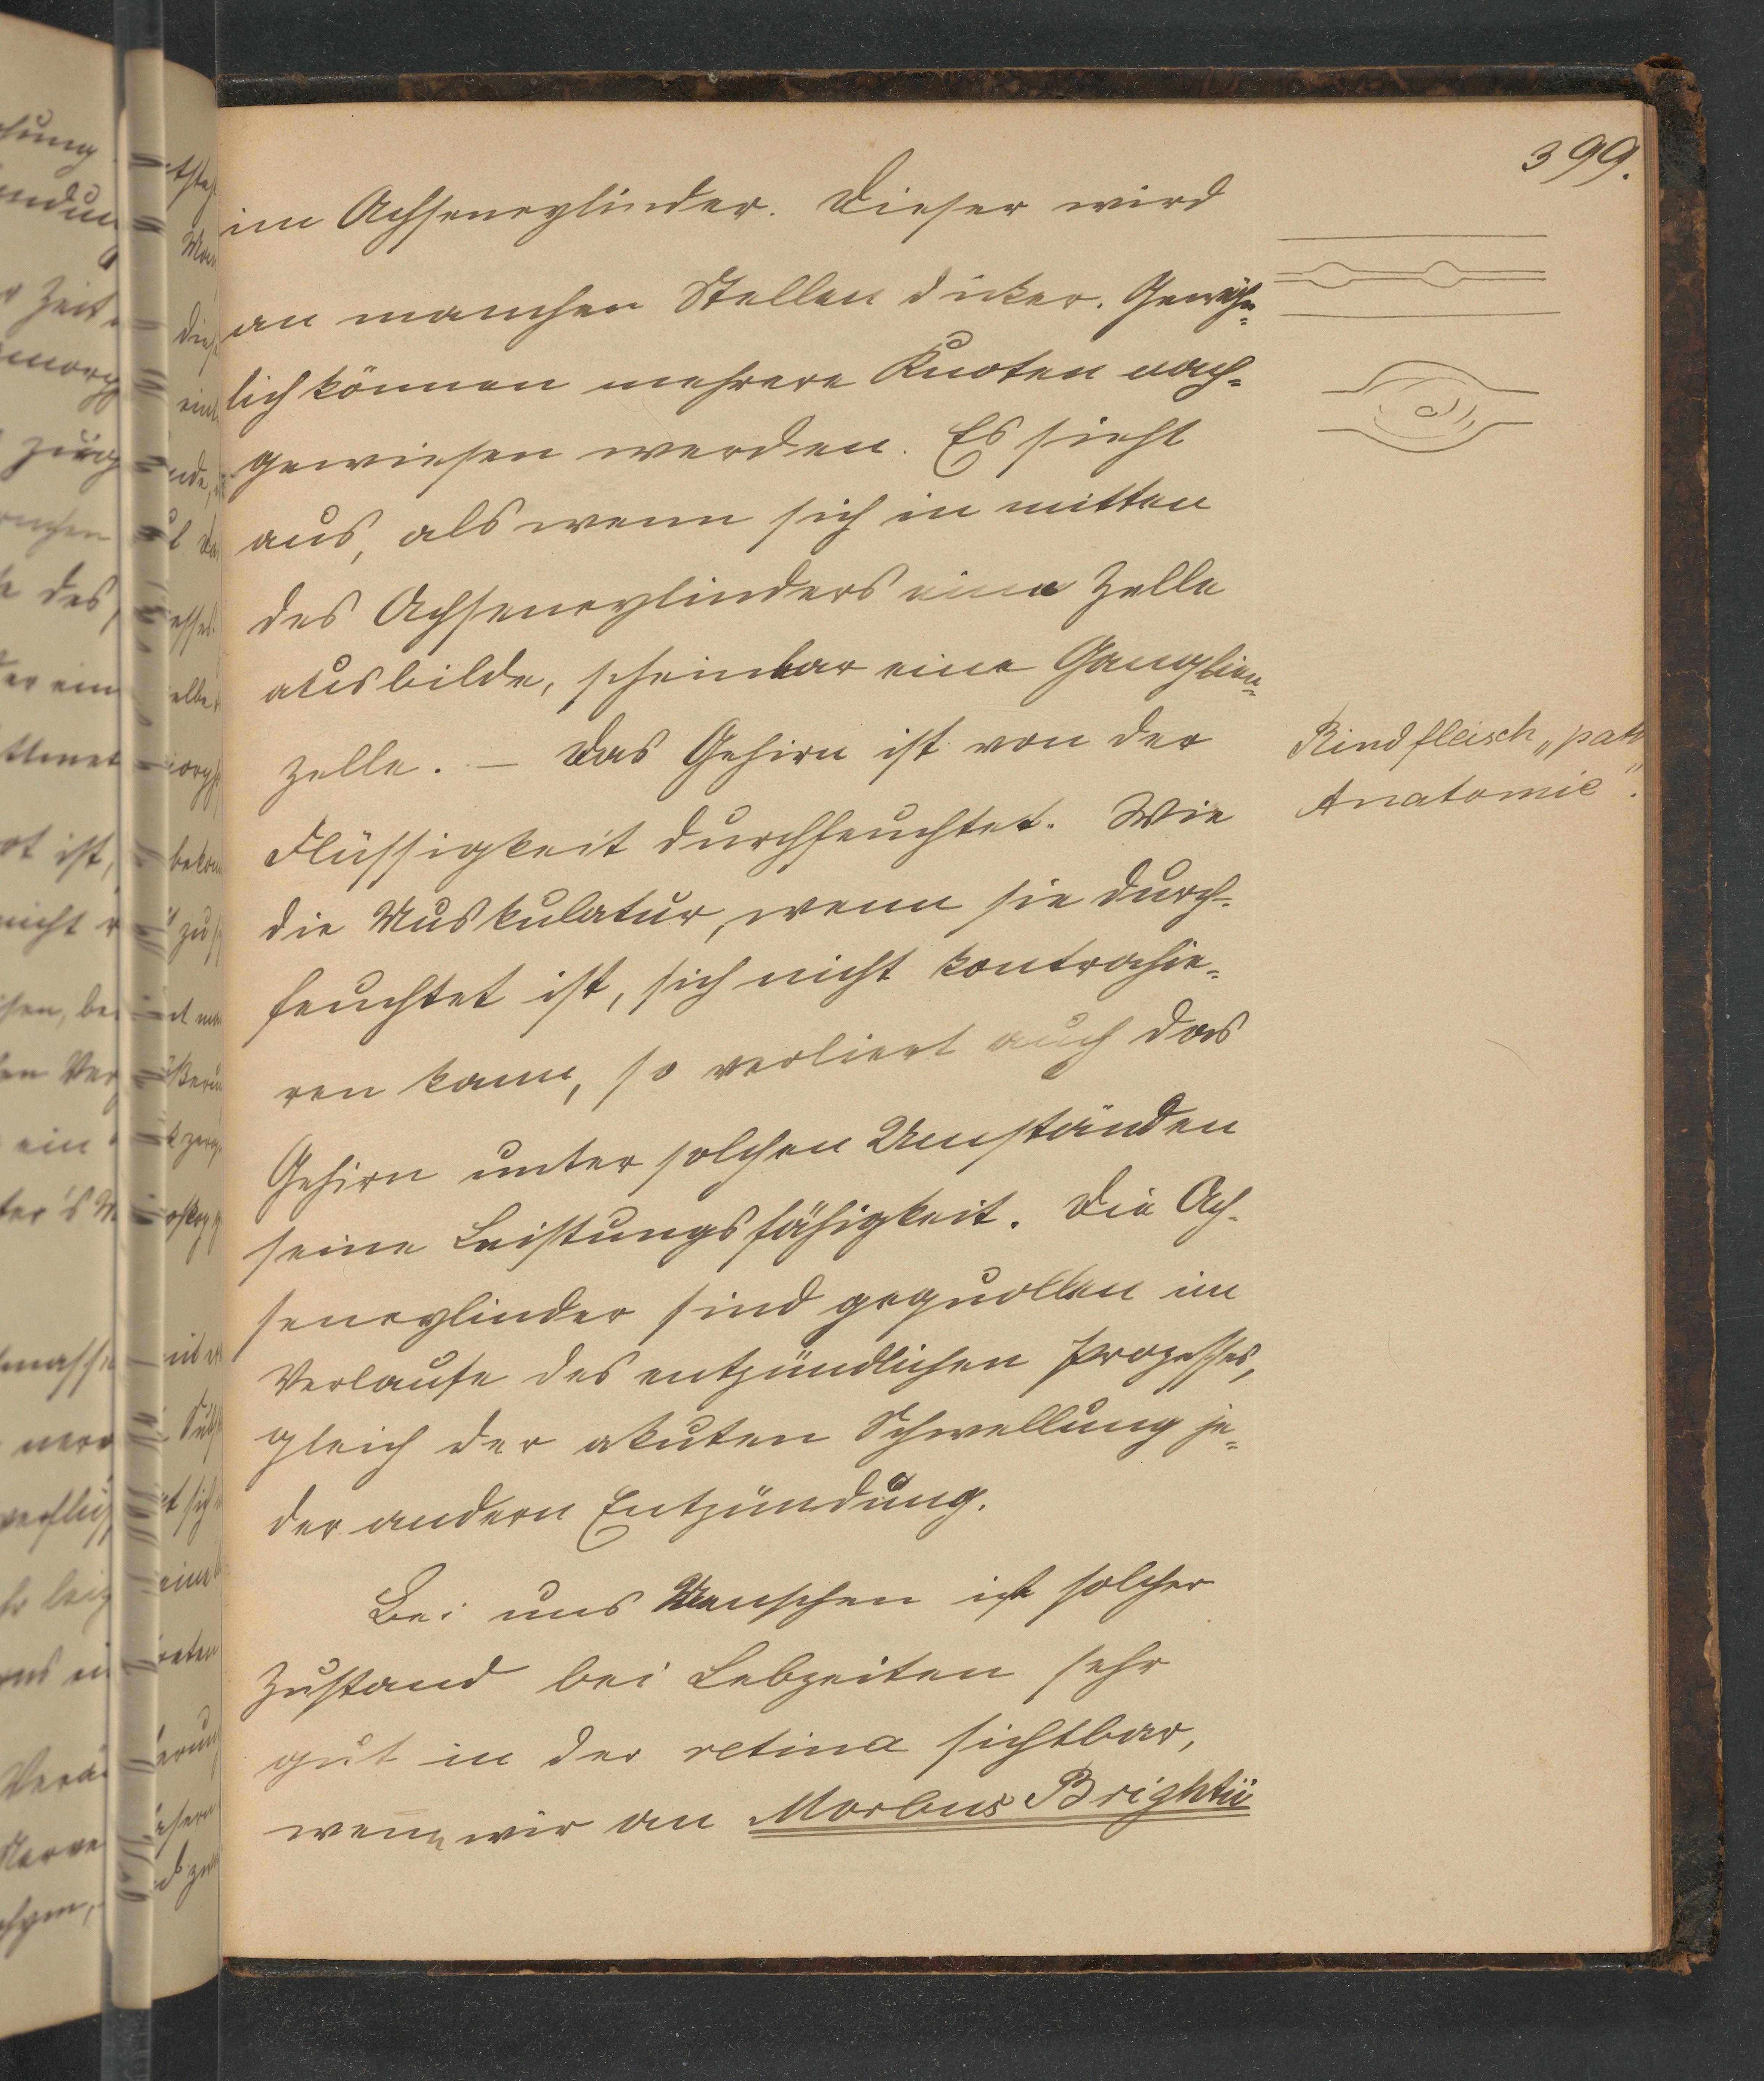 399.
im Achsencylinder. Dieser wird
an manchen Stellen dicker. Gewöhn=
lich können mehrere Knoten nach=
gewiesen werden. Es sieht
aus, als wenn sich in mitten
des Achsencylinders eine Zelle
ausbilde, scheinbar eine Ganglien=
zelle. — Das Gehirn ist von der
Flüssigkeit durchfeuchtet. Wie
die Muskulatur, wenn sie durch=
feuchtet ist, sich nicht kontrahie=
ren kann, so verliert auch das
Gehirn unter solchen Umständen
seine Leistungsfähigkeit. Die Ach=
sencylinder sind gequollen im
Verlaufe des entzündlichen Prozesses,
gleich der akuten Schwellung je=
der andern Entzündung.
Bei uns Menschen ist solcher
Zustand bei Lebzeiten sehr
gut in der retina sichtbar,
wenn wir an Morbus Brightii
Rindfleisch „path
Anatomie".